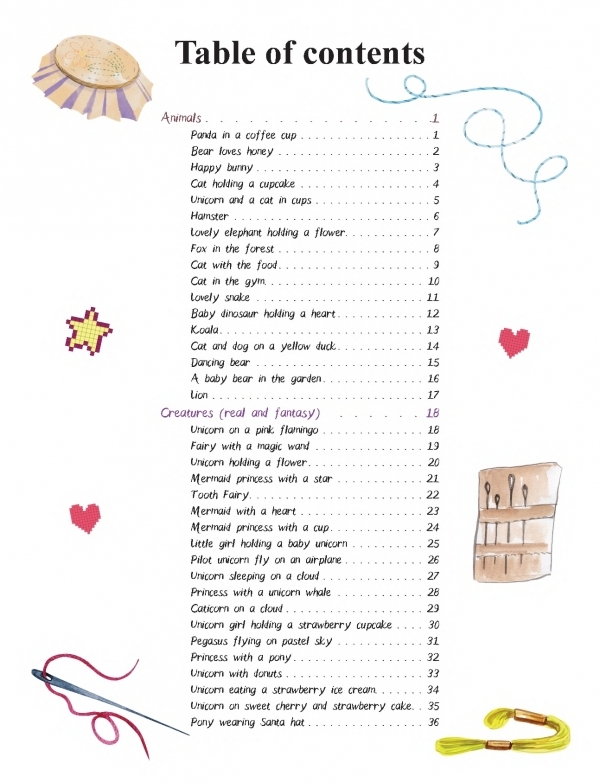 Table of contents
Animals . . . . . . . . . . . . . . . . 1
Panda in a coffee cup . . . . . . . . . . . . . . . . . 1
Bear loves honey . . . . . . . . . . . . . . . . . . . . 2
Happy bunny . . . . . . . . . . . . . . . . . . . . . . . 3
Cat holding a cupcake . . . . . . . . . . . . . . . . . 4
Unicorn and a cat in cups . . . . . . . . . . . . . . . 5
Hamster . . . . . . . . . . . . . . . . . . . . . . . . . . 6
Lovely elephant holding a flower. . . . . . . . . . . 7
Fox in the forest . . . . . . . . . . . . . . . . . . . . 8
Cat with the food. . . . . . . . . . . . . . . . . . . . 9
Cat in the gym. . . . . . . . . . . . . . . . . . . . . 10
Lovely snake . . . . . . . . . . . . . . . . . . . . . . 11
Baby dinosaur holding a heart . . . . . . . . . . . . 12
Koala. . . . . . . . . . . . . . . . . . . . . . . . . . . 13
Cat and dog on a yellow duck. . . . . . . . . . . . 14
Dancing bear . . . . . . . . . . . . . . . . . . . . . . 15
A baby bear in the garden. . . . . . . . . . . . . . 16
Lion . . . . . . . . . . . . . . . . . . . . . . . . . . . . 17
Creatures (real and fantasy) . . . . . . 18
Unicorn on a pink flamingo . . . . . . . . . . . . . . 18
Fairy with a magic wand . . . . . . . . . . . . . . . 19
Unicorn holding a flower. . . . . . . . . . . . . . . . 20
Mermaid princess with a star . . . . . . . . . . . . 21
Tooth Fairy. . . . . . . . . . . . . . . . . . . . . . . 22
Mermaid with a heart . . . . . . . . . . . . . . . . . 23
Mermaid princess with a cup. . . . . . . . . . . . . 24
Little girl holding a baby unicorn . . . . . . . . . . 25
Pilot unicorn fly on an airplane . . . . . . . . . . . 26
Unicorn sleeping on a cloud . . . . . . . . . . . . . . 27
Princess with a unicorn whale . . . . . . . . . . . . 28
Caticorn on a cloud . . . . . . . . . . . . . . . . . . . 29
Unicorn girl holding a strawberry cupcake . . . . 30
Pegasus flying on pastel sky . . . . . . . . . . . . . 31
Princess with a pony . . . . . . . . . . . . . . . . . . 32
Unicorn with donuts . . . . . . . . . . . . . . . . . . . 33
Unicorn eating a strawberry ice cream. . . . . . . 34
Unicorn on sweet cherry and strawberry cake. . 35
Pony wearing Santa hat . . . . . . . . . . . . . . . . 36